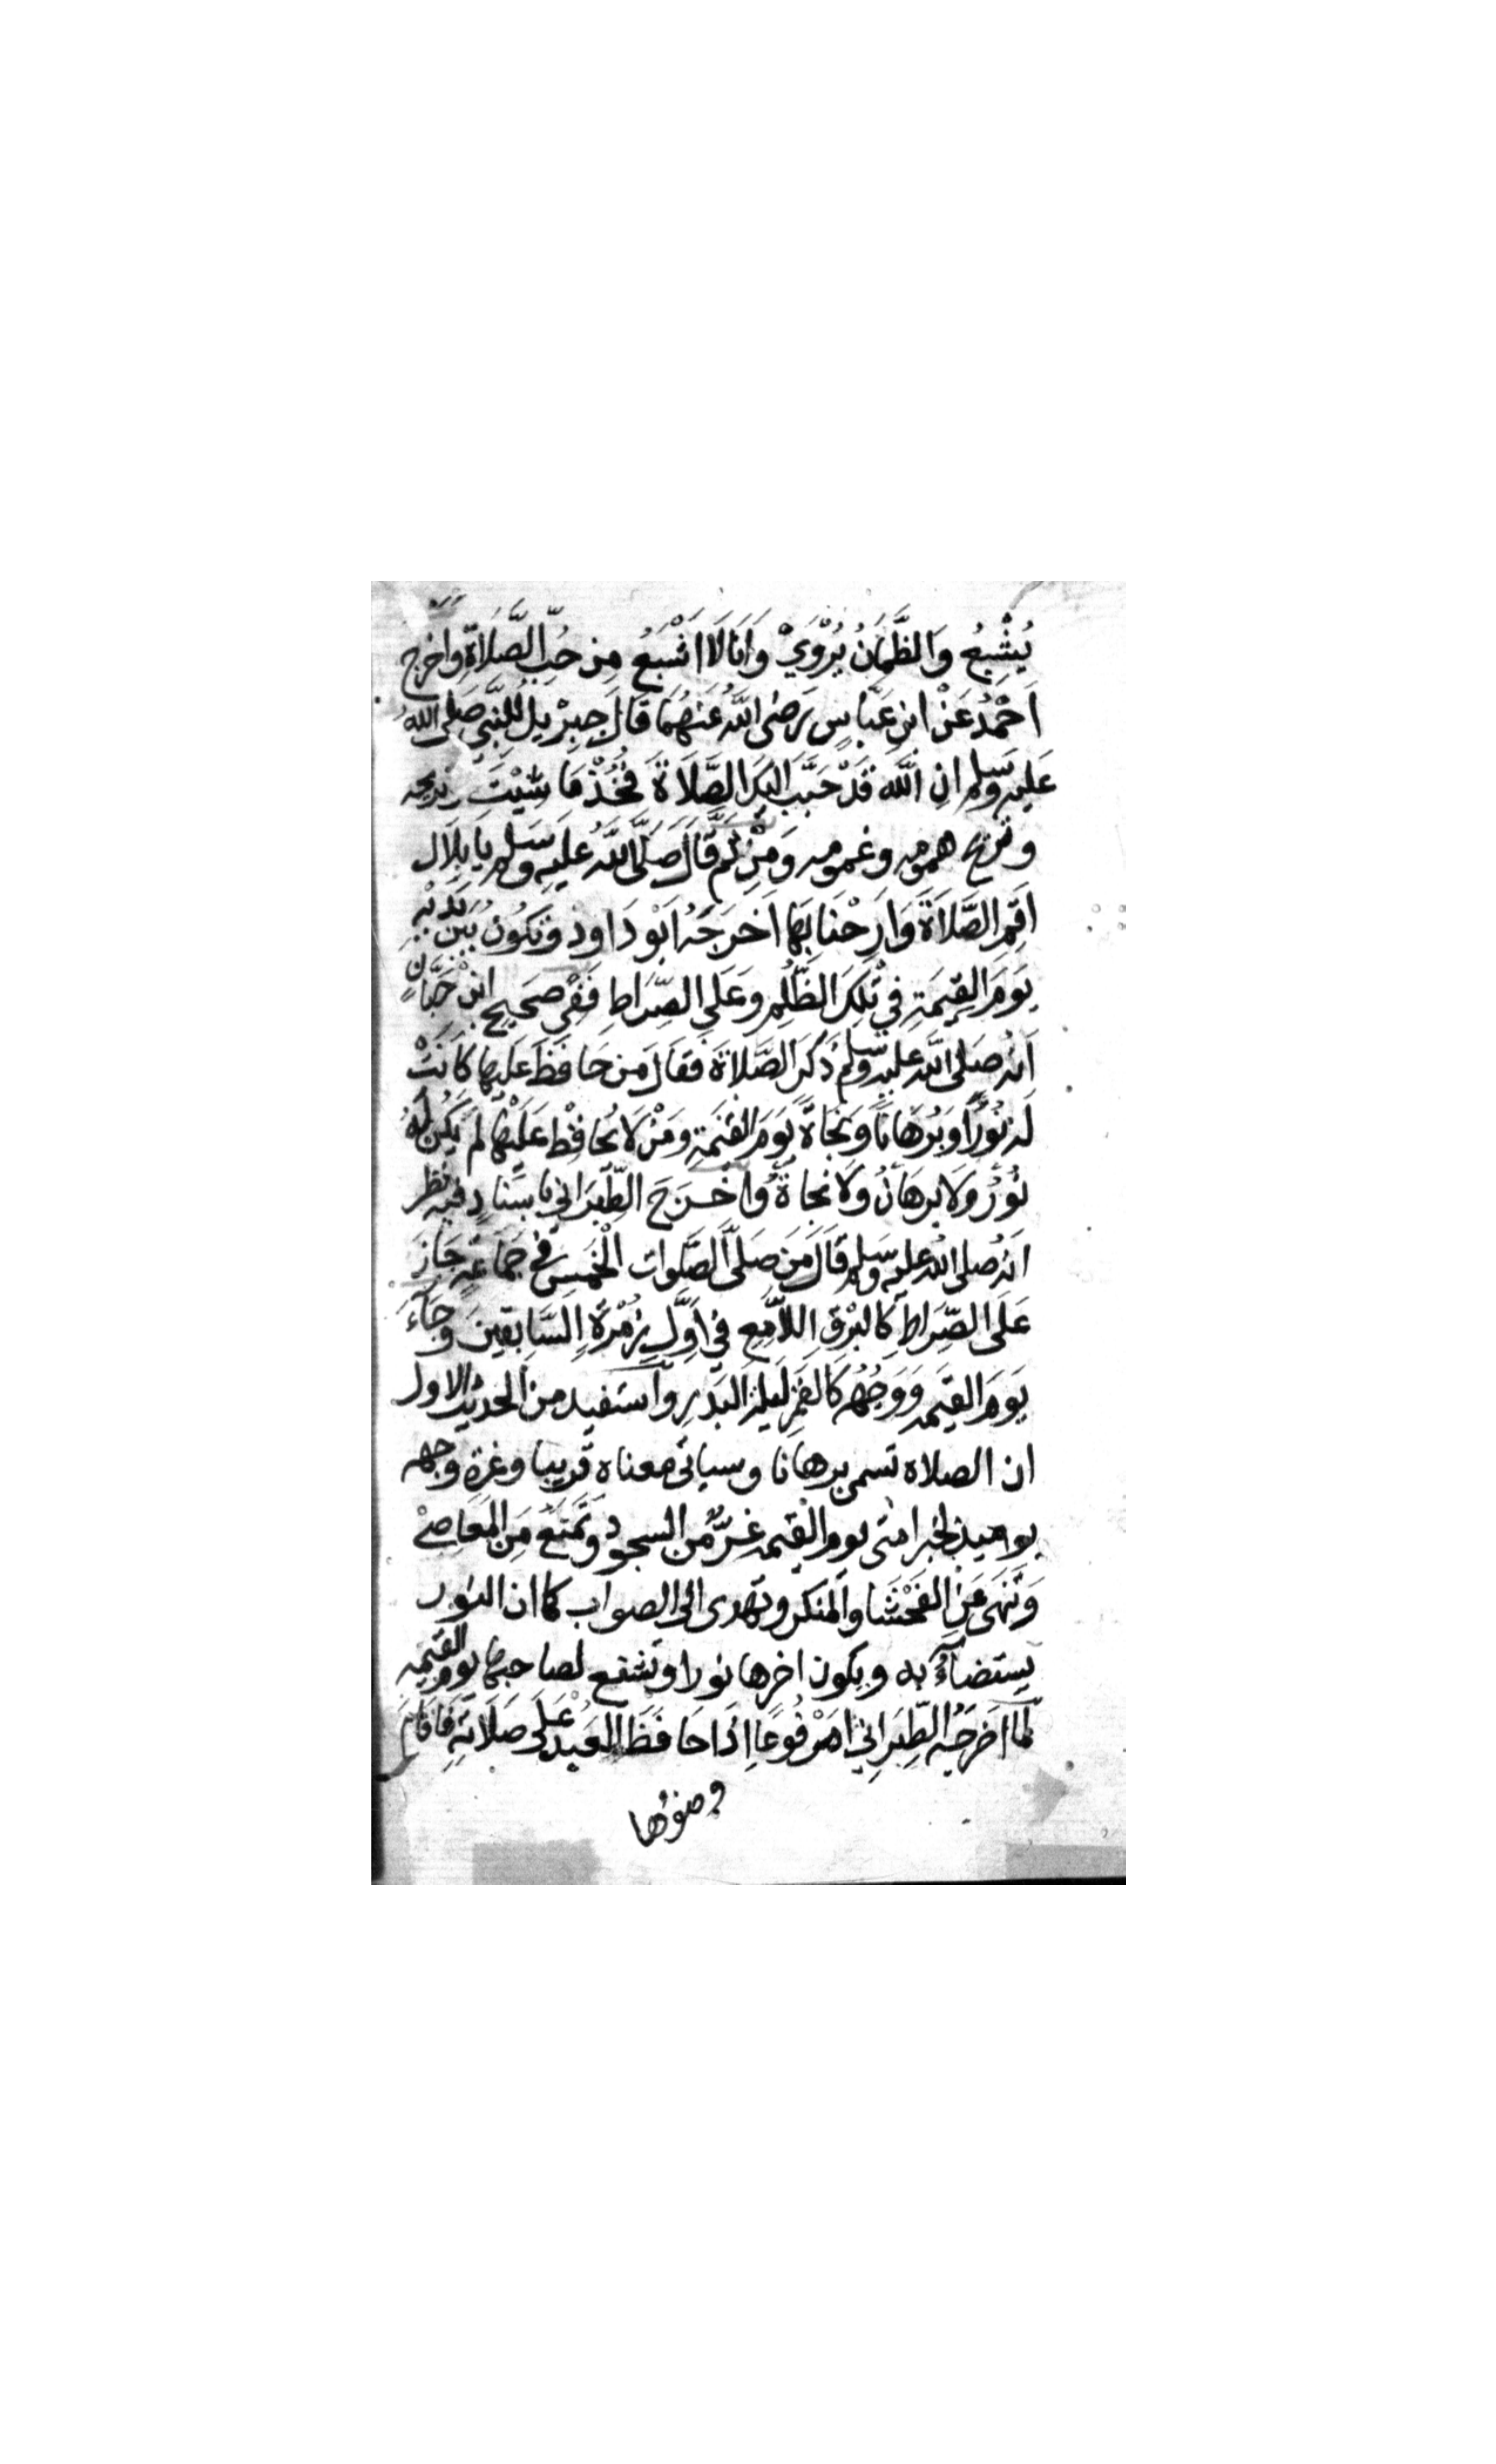 يُشْبِعُ وَالظَّمْانُ يُرْوَيْ وَانَا لَا اشْبَعُ مِن حُبِّ الصَّلَاةِ واخرج
اَحْمَدُ عَنْ ابنِ عَبَّاسٍ رَضي اللَّه عَنهُمَا قَالَ جِبِرْيلُ للِنَّبيِّ صَلى اللهُ
عَليه وَسلم انِ اللَّهَ قَدْ حَبَّبَ اليَكَ الصَّلَاةَ فَخُذْ مَا شِئْتَ
همومه وغمومه وَمِنْ ثَمَّ قَالَ صَلَّى اللَّهُ عَليهِ وَسَلم يَا بِلَال
اَقِمِ الصَّلَاةَ وَارِحْنَا بِهَا اَخرَجَهُ ابَوْ دَاوذ وَتَكوُنُ بَينَ يَدَيْهِ
يَومَ القِيمَةِ في تْلِكَ الظُّلَمِ وَعَلي الصِّرَاطِ فَفي صَحِيحِ ابنْ حَبَّانٍ
اَنهُ صَلى اللَّه عَليه وسلم ذَكَرَ الصَّلَاةَ فَقَالَ مَن حَافَظَ عَلَيهَا كَانَتْ
لَه نُورًا وَبُرْهَانًا وَنَجَاةً يَومَ القيَمَةِ وَمَنْ لَا يُحَافِظ عَلَيْهَا لَم يَكُن لَهُ
نُوُرٌ وَلَا بُرهَانٌ وَلَا نَجَاةٌ وَاَخْرَجَ الطَّبَرَاني باسنَادٍ فيه نظر
اَنهُ صلى اللهُ عليه وسَلم قَالَ مَنَ صَلَّى الصَّلوات الْخَمسِ في جَمَاعَةٍ جَازَ
عَلَى الصِّرَاطِ كَالبَرْقِ اللاَّمِعِ في اَوَّلِ زُمْرَةِ السَّابِقينَ وَجَآءَ
يَومَ القيَمه وَوَجْهُه كَالقَمَرِ لَيلةَ البَدرِ واستفيد من الحديث الاول
ان الصلاه تسمى برهانا وسياتي معناه قريبا وغرة وجهه
يوميذ لخبر امتى يوم القيمه غُرٌّ من السجود وَتَمَنعُ مِنَ المَعَاصِيْ
وَتَنهَى عَنِ الفَحْشَا والمنكر وتهدى الى الصواب كما ان النور
يستضآءُ به ويكون اخرها نورا وتشفع لصاحبها يوم القيمه
لمَا اخرجَه الطَّبَرَاني مَرْفُوعًا اِذَا حَافَظَ العَبدُ عَلَى صَلَاتِهِ فَاقامَ
وضؤها